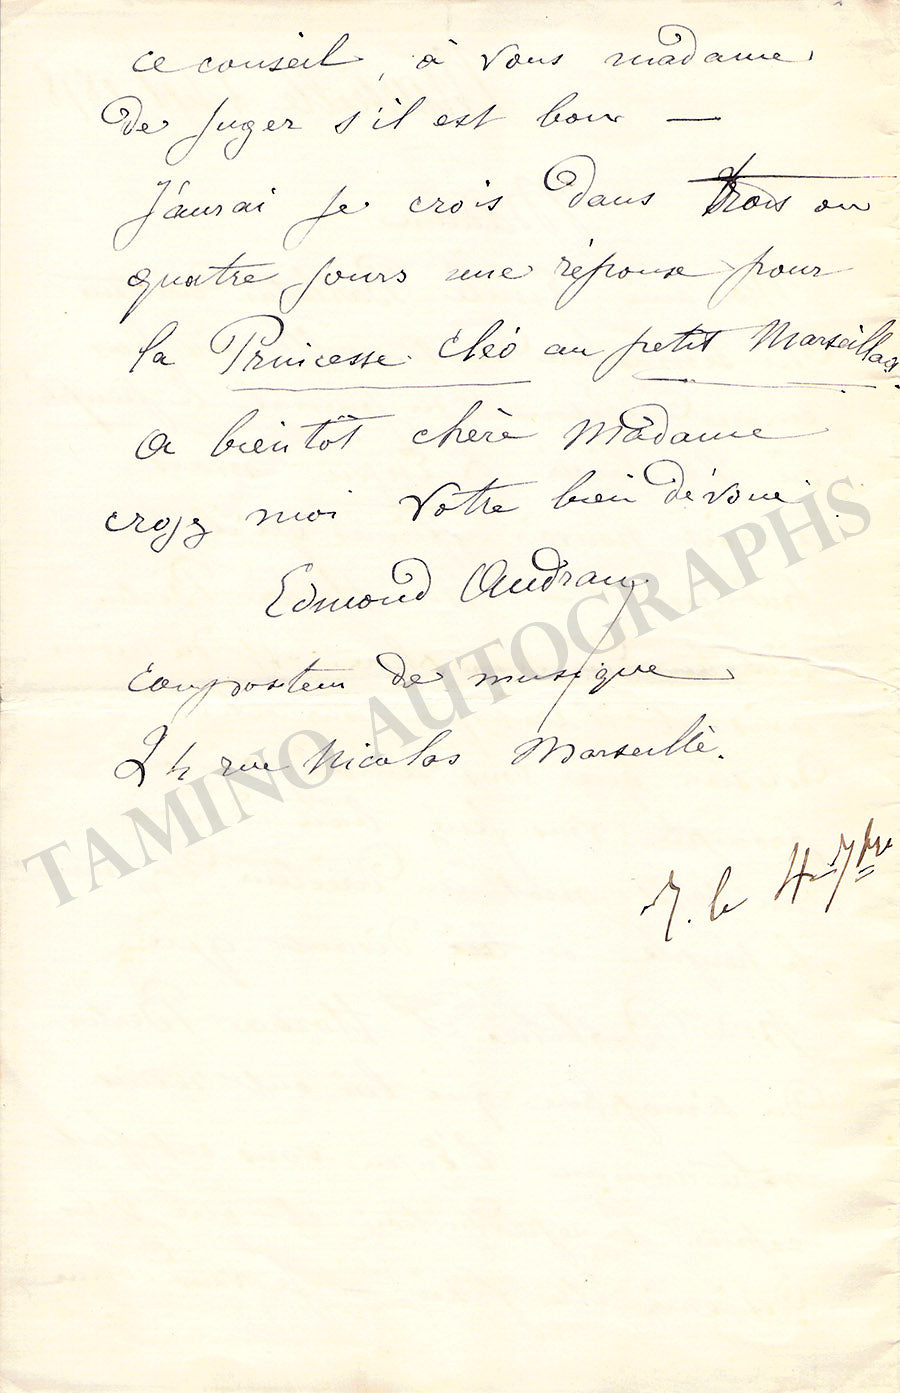 ce conseil, à vous madame
de juger s'il est bon —
J'aurai je crois dans trois ou
quatre jours une réponse pour
la Princesse Cléo au petit Marseillais.
a bientôt chère Madame
croyez moi votre bien dévoué
Edmond Audran
compositeur de musique
24 rue Nicolas Marseille.
R. le 4 7bre
TAMINO AUTOGRAPHS